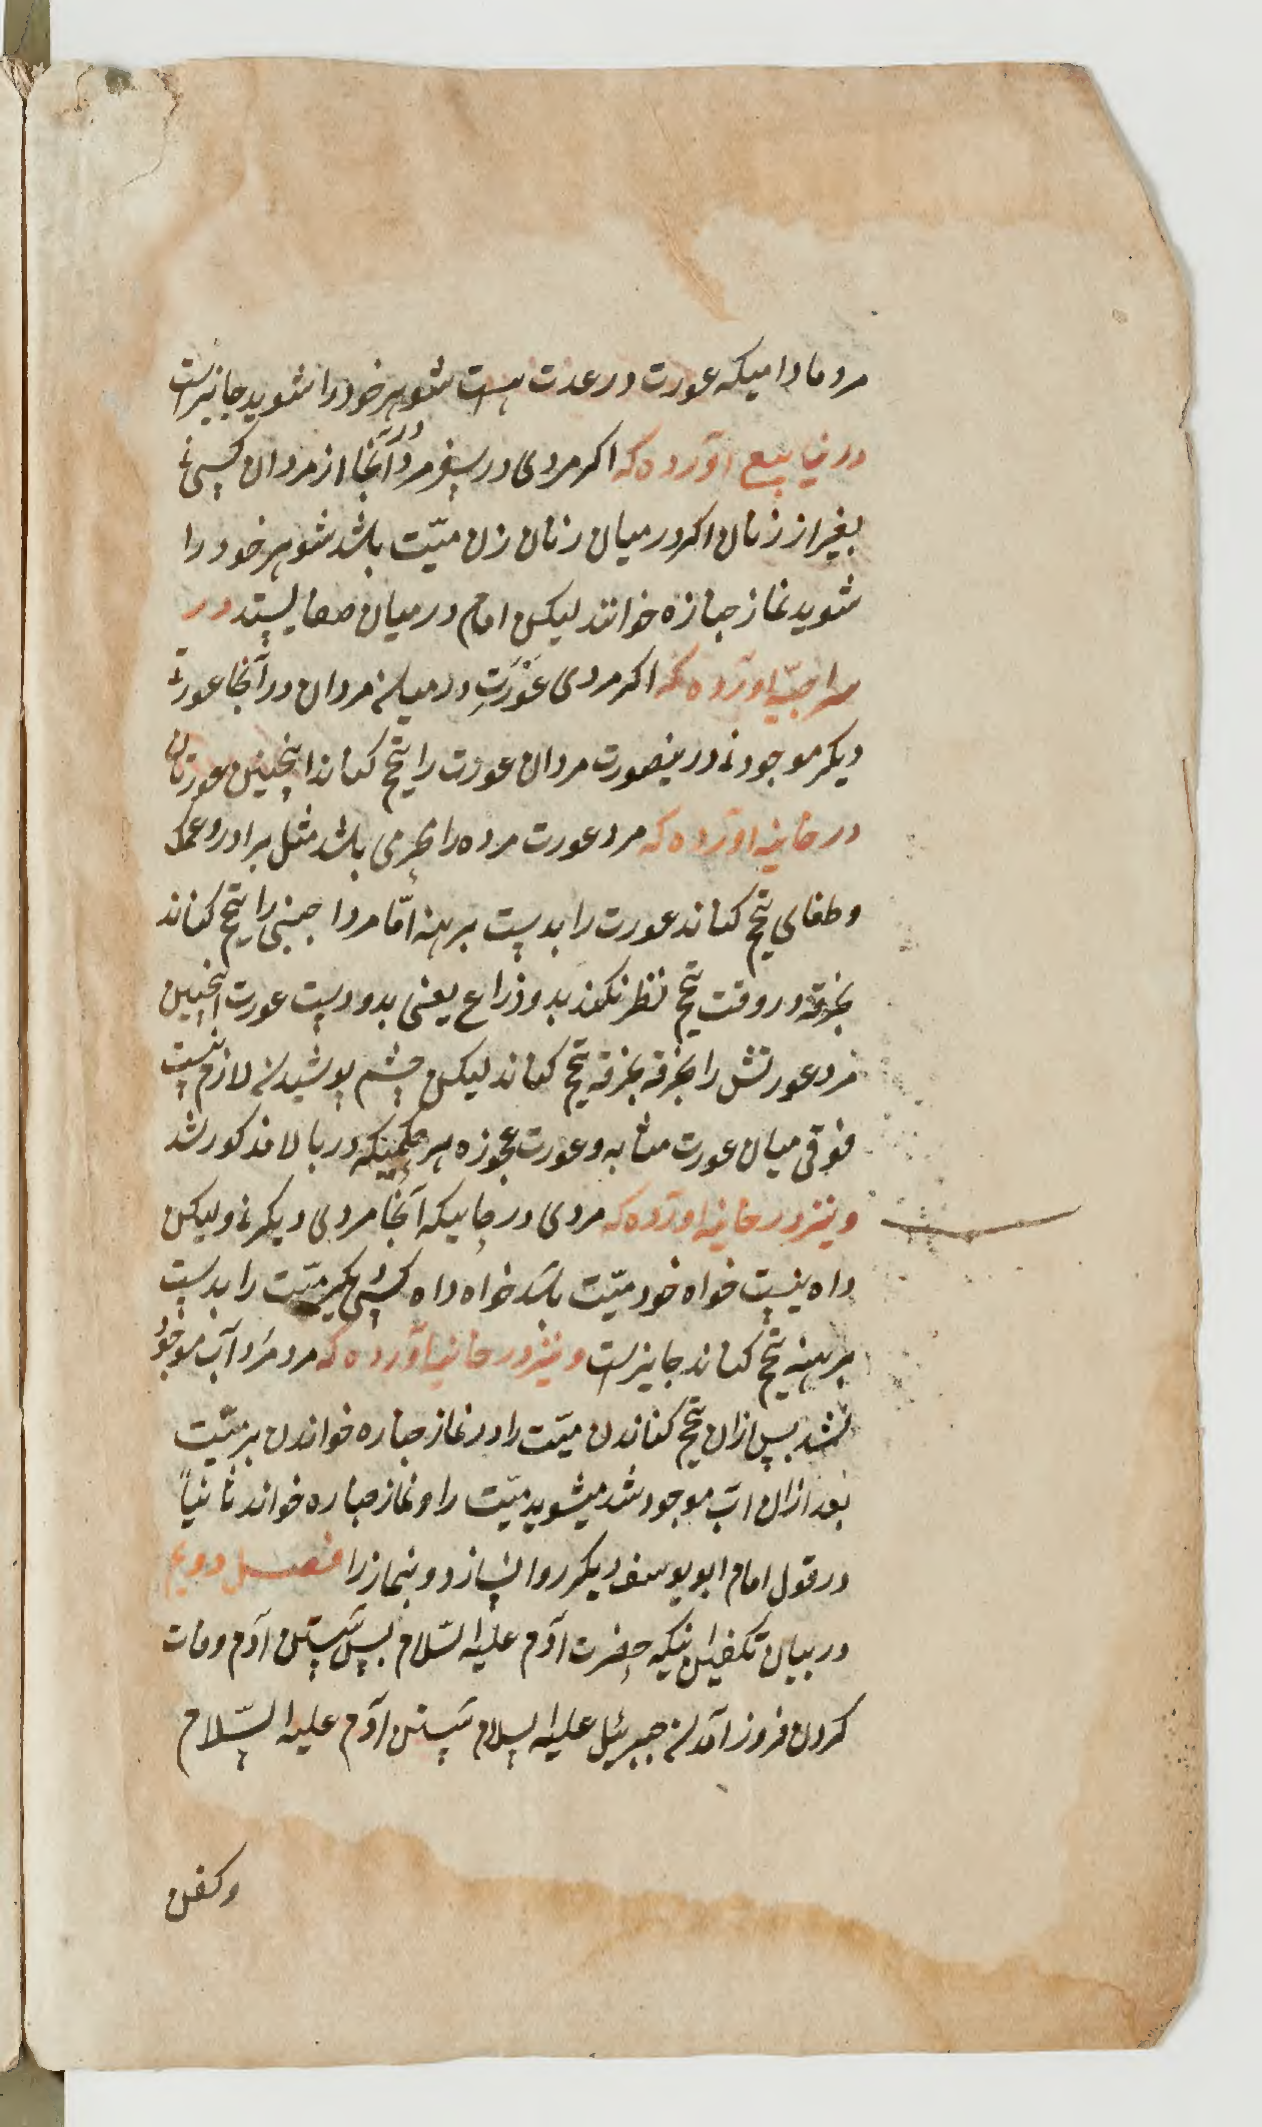 مرد مادامیکه عورت در عدت هست شوهر خود را شوید جایزست
در ینابیع آورده که اکر مردی در سفر مرد در آنجا از مردان کسی نه
بغیر از زنان اکر در میان زنان زن میّت باشد شوهر خود را
شوید نماز جنازه خوانند لیکن امام در میان صفا یستد در
سراجیّه آورده که اکر مردی عَوْرَتِ در میان مردان در آنجا عورت
دیکر موجود نه درینصورت مردان عورت را تیمّم کناند اینچنین عورتان
در خانیه آورده که مرد عورت مرده را محرمی باشد مثل برادر و عمک
و طغای تیمّم کناند عورت را بدست برهنه امّا مرد اجنبی را تیمّم کناند
بخرقه در وقت تیمّم نظر نکند بدو ذراع یعنی بدو دست عورت اینچنین
مرد عورتش را بخرقه بخرقه تیمّم کناند لیکن چشم پوشیدن لازم نیست
فوقی میان عورت مشابه و عورت عجوزه هر حکمیکه در بالا مذکور شد
و نیز در خانیه آورده که مردی در جاییکه آنجا مردی دیکر نه ولیکن
داه نیست خواه خود میّت باشد خواه داه کسی دیکر میّت را بدست
برهنه تیمّم کناند جایزست و نیز در خانیه آورده که مرد مَرد آب موجود
نشد پس ازان تیمّم کناندن میّت را در نماز جنازه خواندن بر میّت
بعد ازان آب موجود شد میشوید میّت را و نماز جنازه خواند ثانیاً
در قول امام ابو یوسف دیکر روا نسازد و نمازرا فصل دویم
در بیان تکفین اینیکه حضرت آدم علیه السّلام پس شستن آدم وفات
کردن فروز آمدن جبرئیل علیه السلام شستن آدم علیه السّلام
وکفن